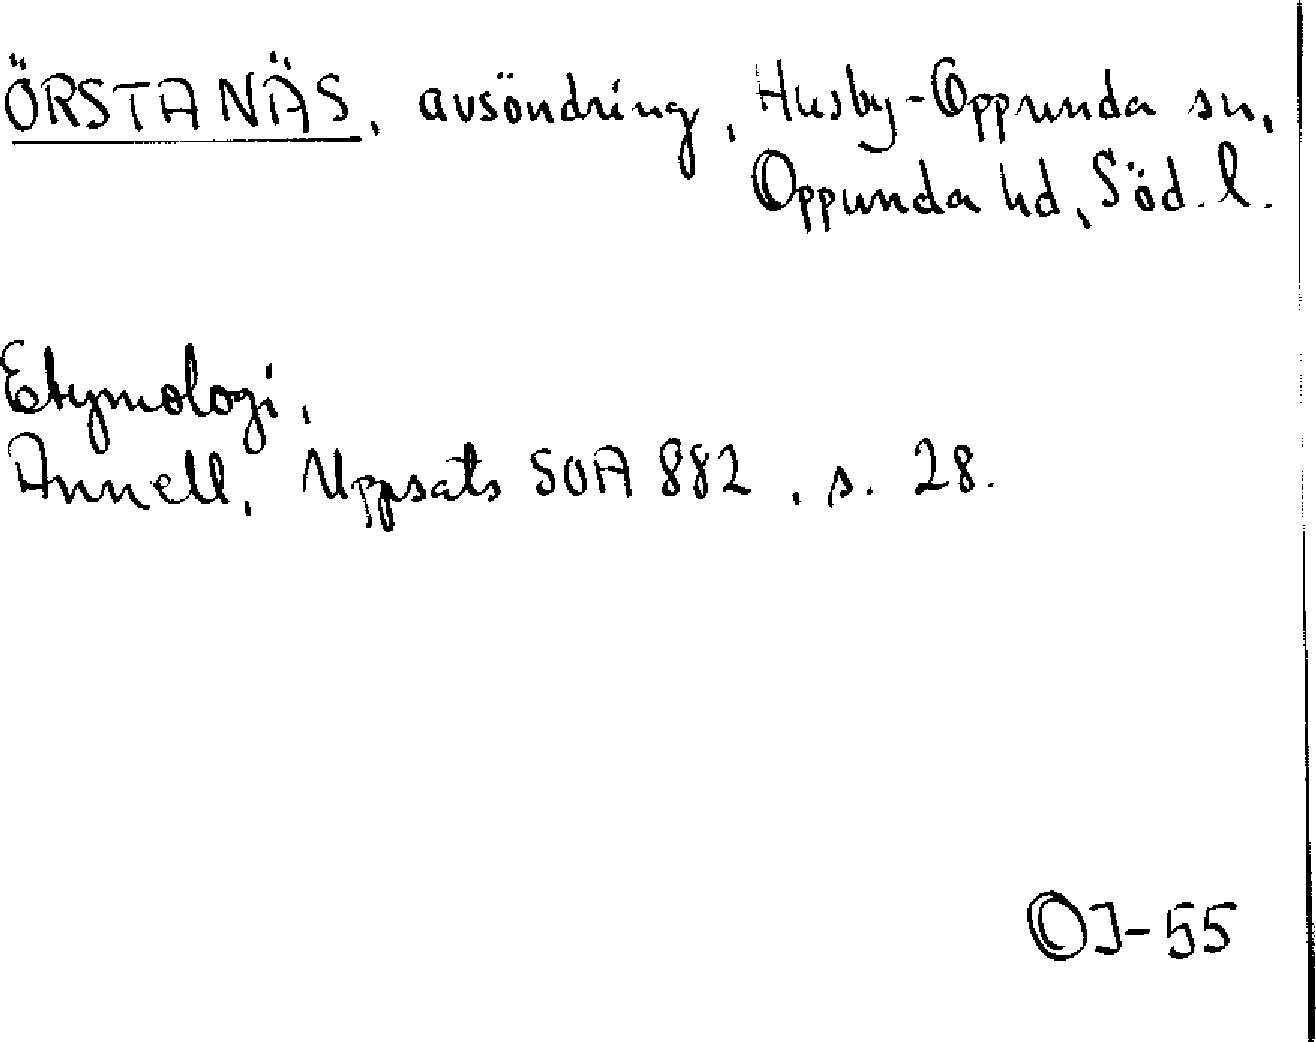 ÖRSTANÄS, avsöndring, Husby-Oppunda sn,
Oppunda hd, Söd. l.
Etymologi,
Annell, Uppsats SOA 882, s. 28.
OJ-55